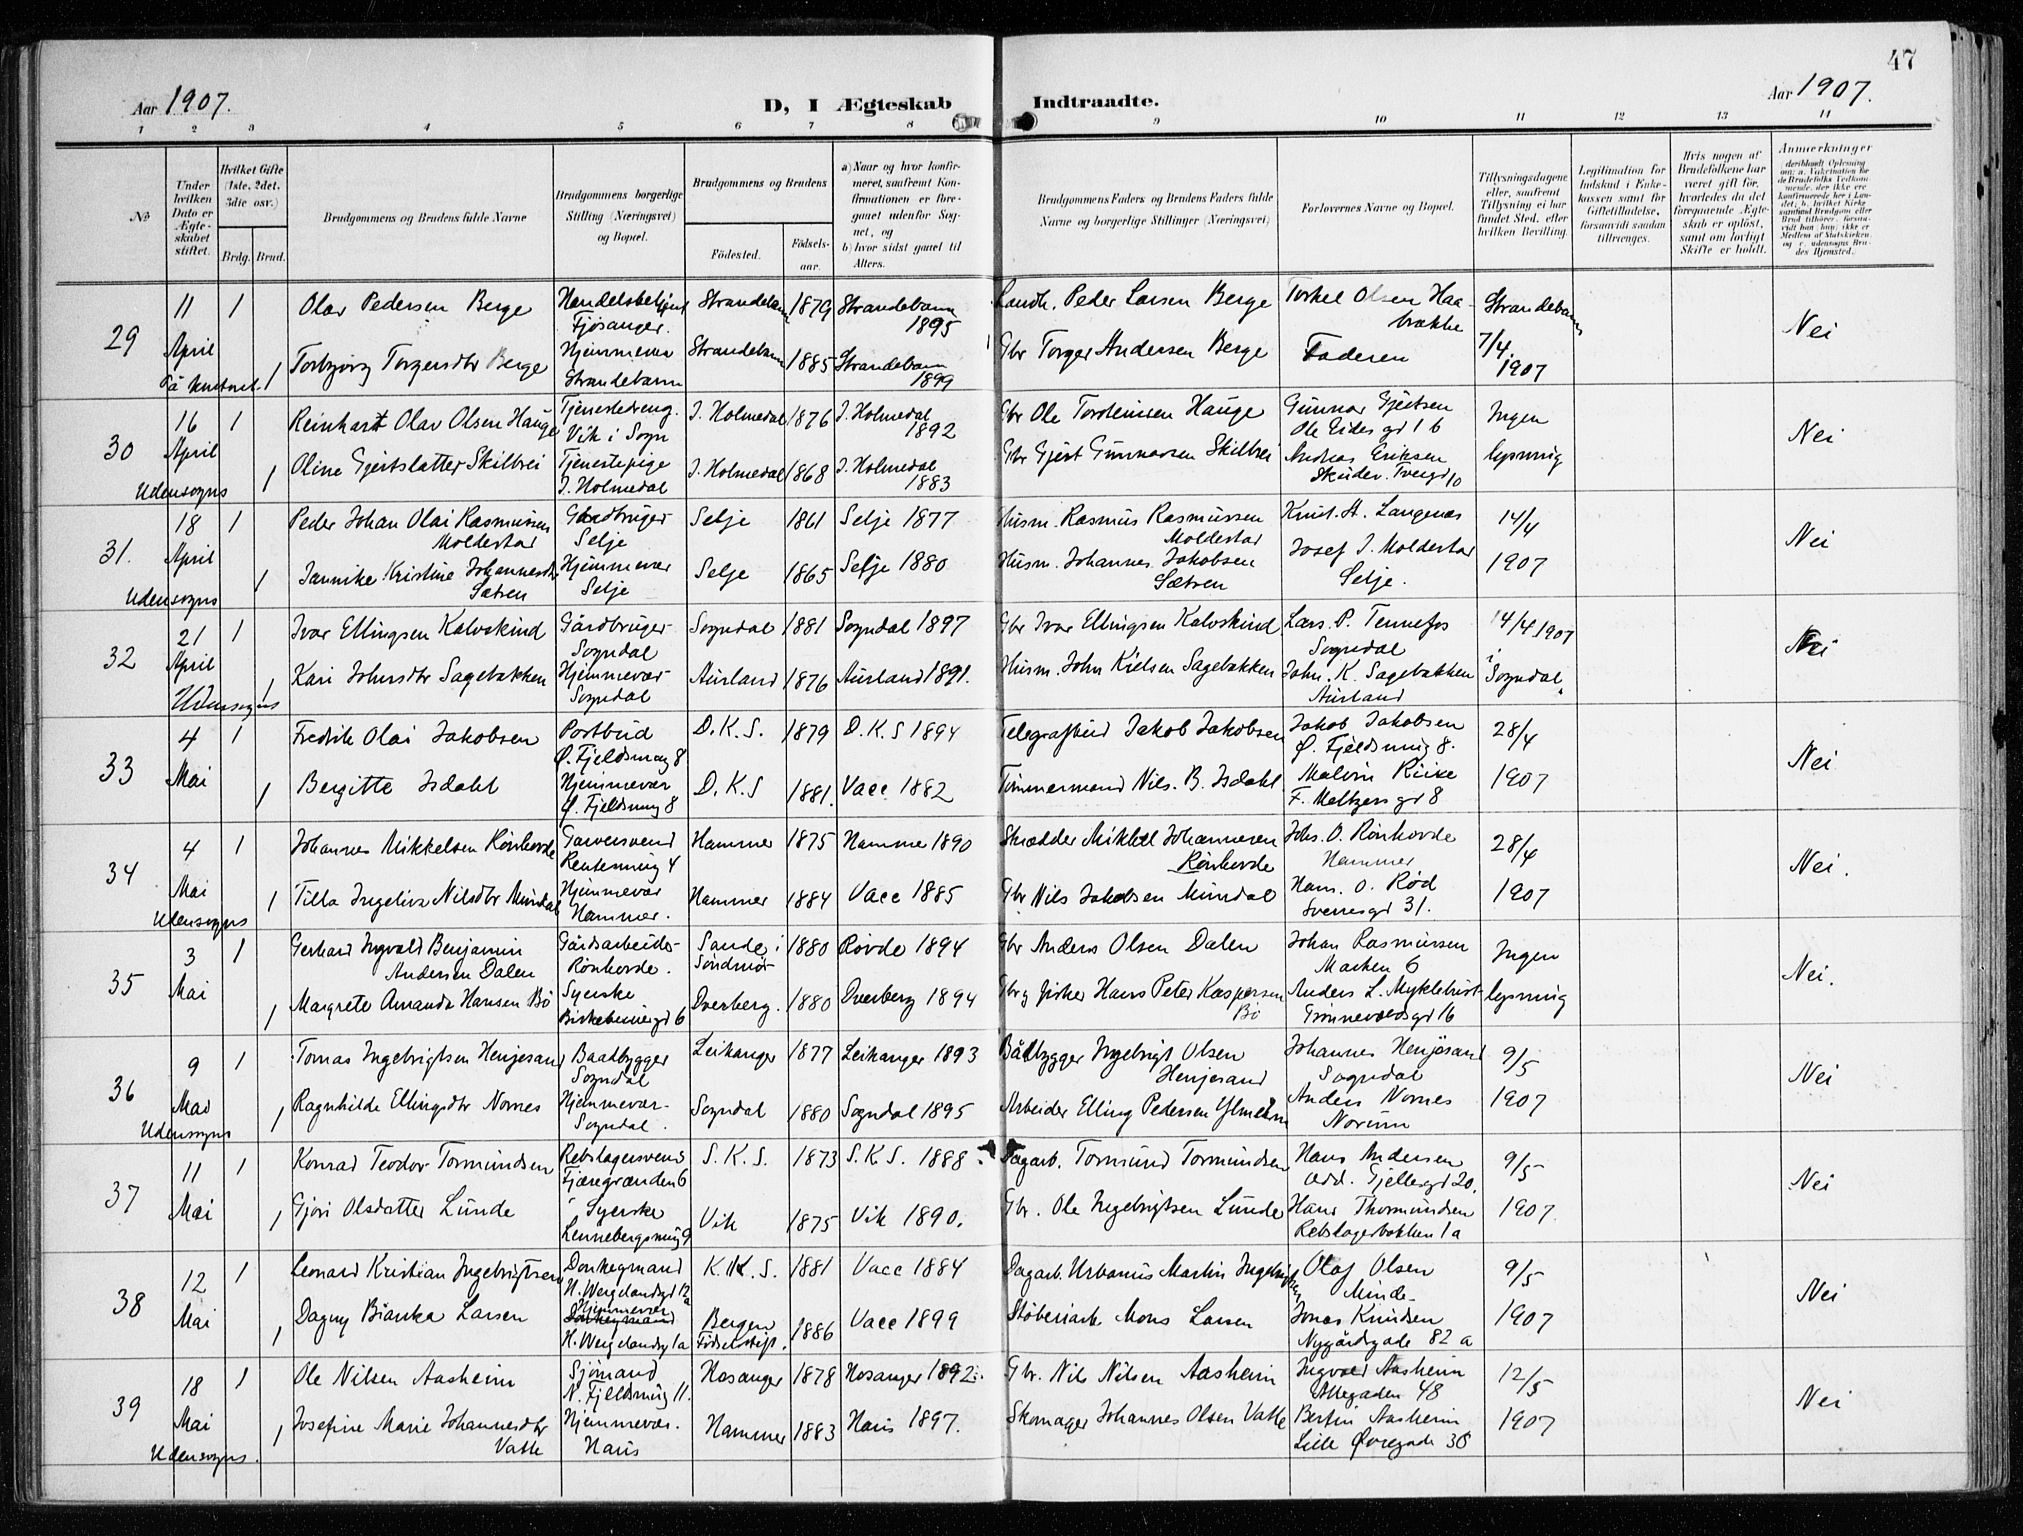 47
Aar 1907.
D, I Ægteskab Indtraadte.
Aar 1907.
1 2 3 4 5 6 7 8 9 10 11 12 13 14
№
Under hvilken Dato er Ægteskabet stiftet.
Hvilket Gifte (1ste, 2det, 3die osv.)
Brdg. Brud.
Brudgommens og Brudens fulde Navne
Brudgommens borgerlige Stilling (Næringsvei) og Bopæl.
Brudgommens og Brudens
Fødested.
Fødselsaar.
a) Naar og hvor konfirmeret, saafremt Konfirmationen er foregaaet udenfor Sognet, og
b) hvor sidst gaaet til Alters.
Brudgommens Faders og Brudens Faders fulde Navne og borgerlige Stillinger (Næringsvei)
Forlovernes Navne og Bopæl.
Tillysningsdagene eller, saafremt Tillysning ei har fundet Sted, efter hvilken Bevilling.
Legitimation for Indskud i Enkekassen samt for Giftetilladelse, forsaavidt saadan tiltrænges.
Hvis nogen af Brudefolkene har været gift før, hvorledes da det foregaaende Ægteskab er opløst, samt om lovligt Skifte er holdt.
Anmerkninger
29 11 April 1 Olav Pedersen Berge Handelsbetjent Fjøsanger. Strandebarm 1879 Strandebarm 1895 Landh. Peder Larsen Berge Torkel Olsen Haabrække Strandebarm 7/4 1907 Nei
1 Torbjørg Torgersdtr Berge Hjemmevær Strandebarm Strandebarm 1885 Strandebarm 1899 Gbr Torger Andersen Berge Faderen
30 16 April Udensogns 1 Reinhart Olav Olsen Hauge Tjenestedreng. Vik i Sogn I. Holmedal 1876 I. Holmedal 1892 Gbr Ole Torsteinsen Hauge Gunnar Gjertsen Ole Eides gd 16 Ingen lysning Nei
1 Oline Gjertsdatter Skilbrei Tjenestepige I. Holmedal I. Holmedal 1868 I. Holmedal 1883 Gbr Gjert Gunnarsen Skilbrei Andreas Eriksen
31. 18 April Udensogns 1 Peder Johan Olai Rasmussen Moldestar Gardbruger Selje Selje 1861 Selje 1877 Husm. Rasmus Rasmussen Moldestar Knut. A. Langenes 14/4 1907 Nei
1 Jannike Kristine Johannesdtr Sætren Hjemmevær Selje Selje 1865 Selje 1880 Husm. Johannes Jakobsen Sætren Josef J. Moldestar Selje.
32 21 April Udensogns 1 Ivar Ellingsen Kalvskind Gårdbruger Sogndal Sogndal 1881 Sogndal 1897 Gbr Ivar Ellingsen Kalvskind Lars. P. Tennefos Sogndal 14/4 1907 i Sogndal Nei
1 Kari Johnsdtr Sagebakken Hjemmevær Sogndal Aurland 1876 Aurland 1891. Husm. John Kielsen Sagebakken John. K. Sagebakken Aurland
33 4 Mai 1 Fredrik Olai Jakobsen Postbud Ø. Fjeldsmug 8 D. K. S. 1879 D. K. S 1894 Telegrafbud Jakob Jakobsen Jakob Jakobsen Ø. Fjeldsmug 8. 28/4 1907 Nei
1 Bergitte Isdahl Hjemmevær Ø. Fjeldsmug 8 D. K. S 1881. Vacc 1882 Tømmermand Nils. B. Isdahl F. Meltzers gd 8
34 4 Mai Udensogns 1 Johannes Mikkelsen Rønhovde Garversvend Hammer 1875 Hammer 1890 Skrædder Mikkel Johannesen Rønhovde Johs. O. Rønhovde Hammer 28/4 1907 Nei.
1 Tilla Ingeline Nilsdtr Mundal Hjemmevær Hammer. Hammer 1884 Vacc 1885 Gbr Nils Jakobsen Mundal Hans. O. Rød Sverresgd 31.
35 3 Mai 1 Gerhard Ingvald Benjamin Andersen Dalen Gårdsarbeider Rønhovde. Sande i Søndmør 1880 Rovde 1894 Gbr Anders Olsen Dalen Johan Rasmussen Marken 6 Ingen lysning Nei.
1 Margrete Amanda Hansen Bø Syerske Birkebeinergd 6 Dverberg. 1880 Dverberg 1894 Gbr og fisker Hans Peter Kaspersen Bø Anders L. Myklebust
36 9 Mai Udensogns 1 Tomas Ingebrigtsen Henjesand Baadbygger Sogndal Leikanger 1877 Leikanger 1893 Båtbygger Ingebrigt Olsen Henjesand Johannes Henjesand Sogndal 9/5 1907 Nei
1 Ragnhilde Ellingsdtr Nornes Hjemmevær. Sogndal. Sogndal 1880 Sogndal 1895 Arbeider Elling Pedersen Anders Nornes Norum
37 11 Mai 1 Konrad Teodor Tormundsen Rebslagersvend Fjæregrænden 6 S. K. S. 1873 S. K. S. 1888. Dagarb. Tormund Tormundsen Hans Andersen Gjellesgd 20. 9/5 1907. Nei
1 Gjøri Olsdatter Lunde Syerske Lennebergsmug 9 Vik 1875 Vik 1890. Gbr. Ole Ingebrigtsen Lunde Hans Thormundsen Rebslagerbakken 1a
38 12 Mai 1 Leonard Kristian Ingebrigtsen Donkeymand H. Wergelandsgd 12a K. K. S. 1881 Vacc 1884 Dagarb. Urbanus Martin Ingebrigtsen Olaf Olsen Minde 9/5 1907 Nei
1 Dagny Bianka Larsen Hjemmevær Donkeymand H. Wergelandsg 1a Bergen Fødselsstift. 1886 Vacc 1899 Støberiarb Mons Larsen Jonas Knudsen Nygårdsgade 82 a
39 18 Mai Udensogns. 1 Ole Nilsen Aasheim Sjømand N. Fjeldsmug 11. Hosanger 1878 Hosanger 1892. Gbr. Nils Nilsen Aasheim Ingvald Aasheim Allegaden 48 12/5 1907 Nei
1 Josefine Marie Johannesdtr Vatle Hjemmevær. Haus Hammer 1883 Haus 1897. Skomager Johannes Olsen Vatle Bertin Aasheim Lille Øvregade 38